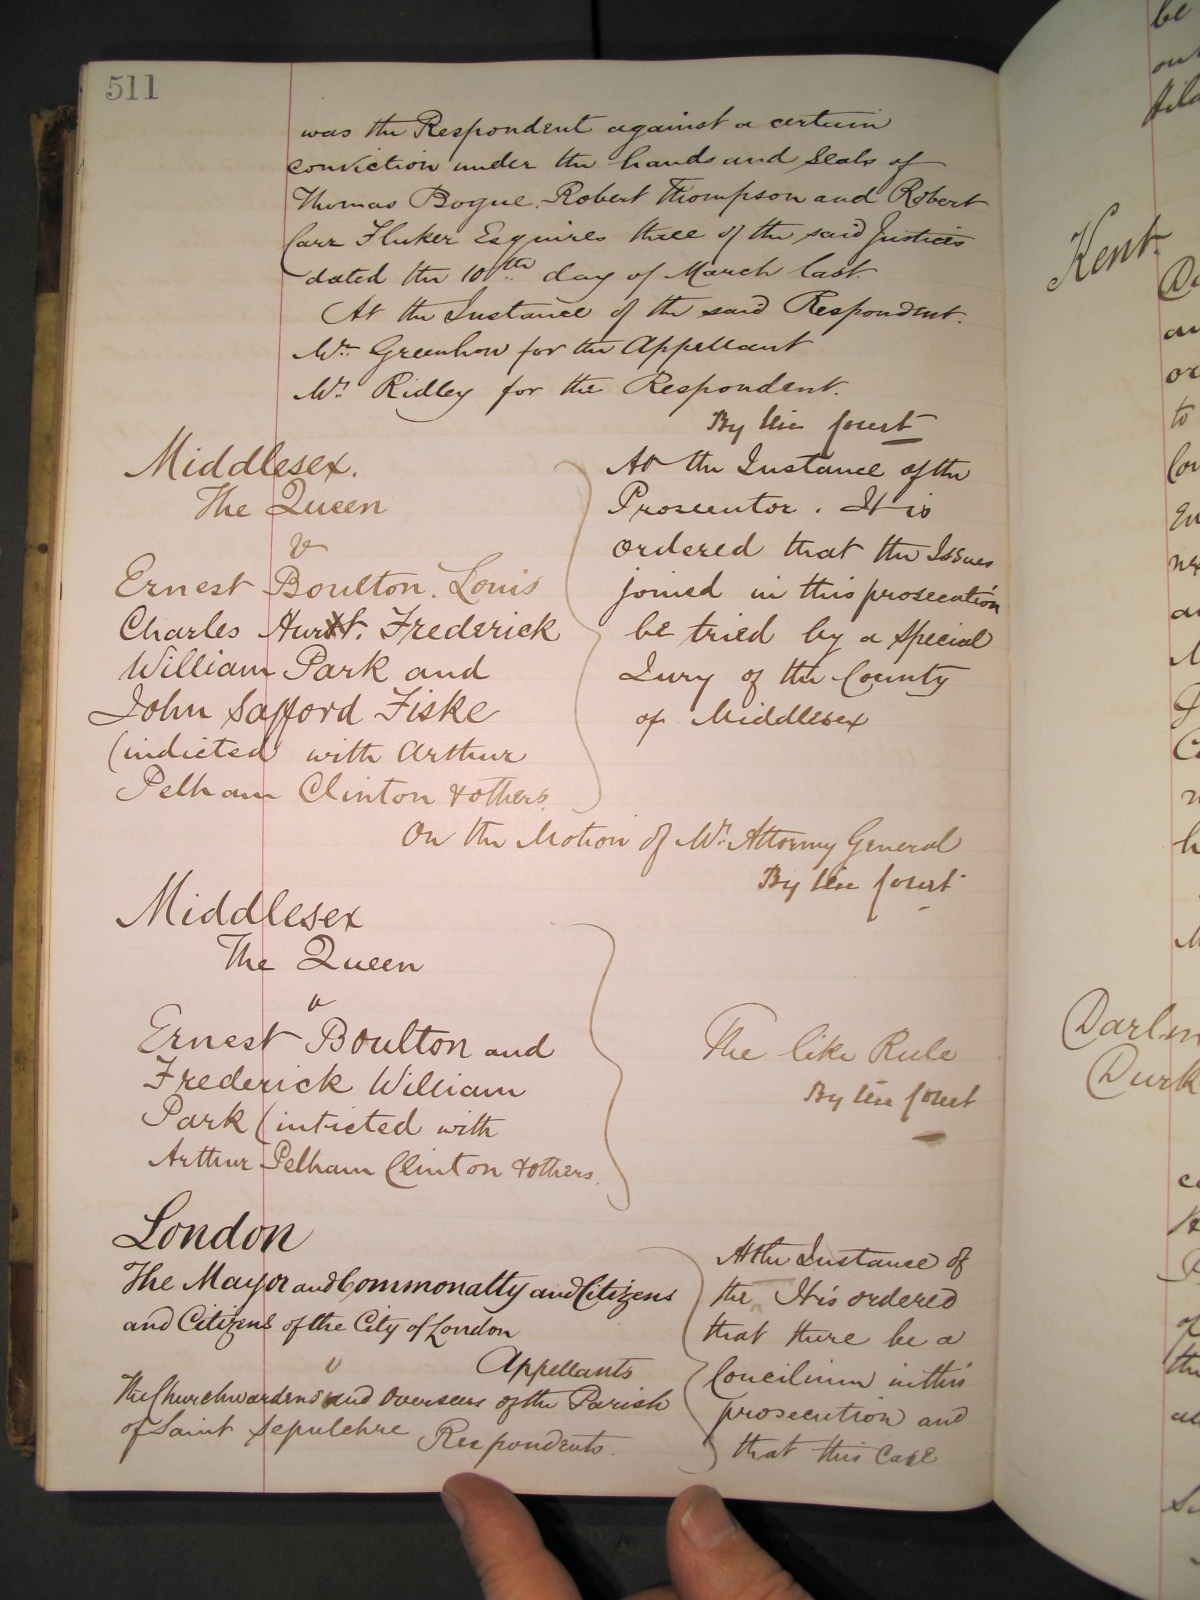 511
was the Respondent against a certain
conviction under the hands and Seals of
Thomas Bogue, Robert Thompson and Robert
Carr Fluker Esquires three of the said Justices
dated the 10th day of March last.
At the Instance of the said Respondent.
Mr. Greenhow for the Appellant
Mr. Ridley for the Respondent.
By the Court
Middlesex.
The Queen
v
Ernest Boulton. Louis
Charles Hurt. Frederick
William Park and
John Safford Fiske
(indicted with Arthur
Pelham Clinton & others.
At the Instance of the
Prosecutor. It is
ordered that the Issues
joined in this prosecution
be tried by a Special
Jury of the County
of Middlesex
On the Motion of Mr. Attorny General
By the Court
Middlesex
The Queen
v
Ernest Boulton and
Frederick William
Park (inticted with
Arthur Pelham Clinton & others.
The like Rule
By the Court
London
The Mayor and Commonalty and Citizens
and Citizens of the City of London
Appellants
v
The Churchwardens and Overseers of the Parish
of Saint Sepulchre Respondents.
At the Instance of
the It is ordered
that there be a
Concilium in this
prosecution and
that this Case
Kent.